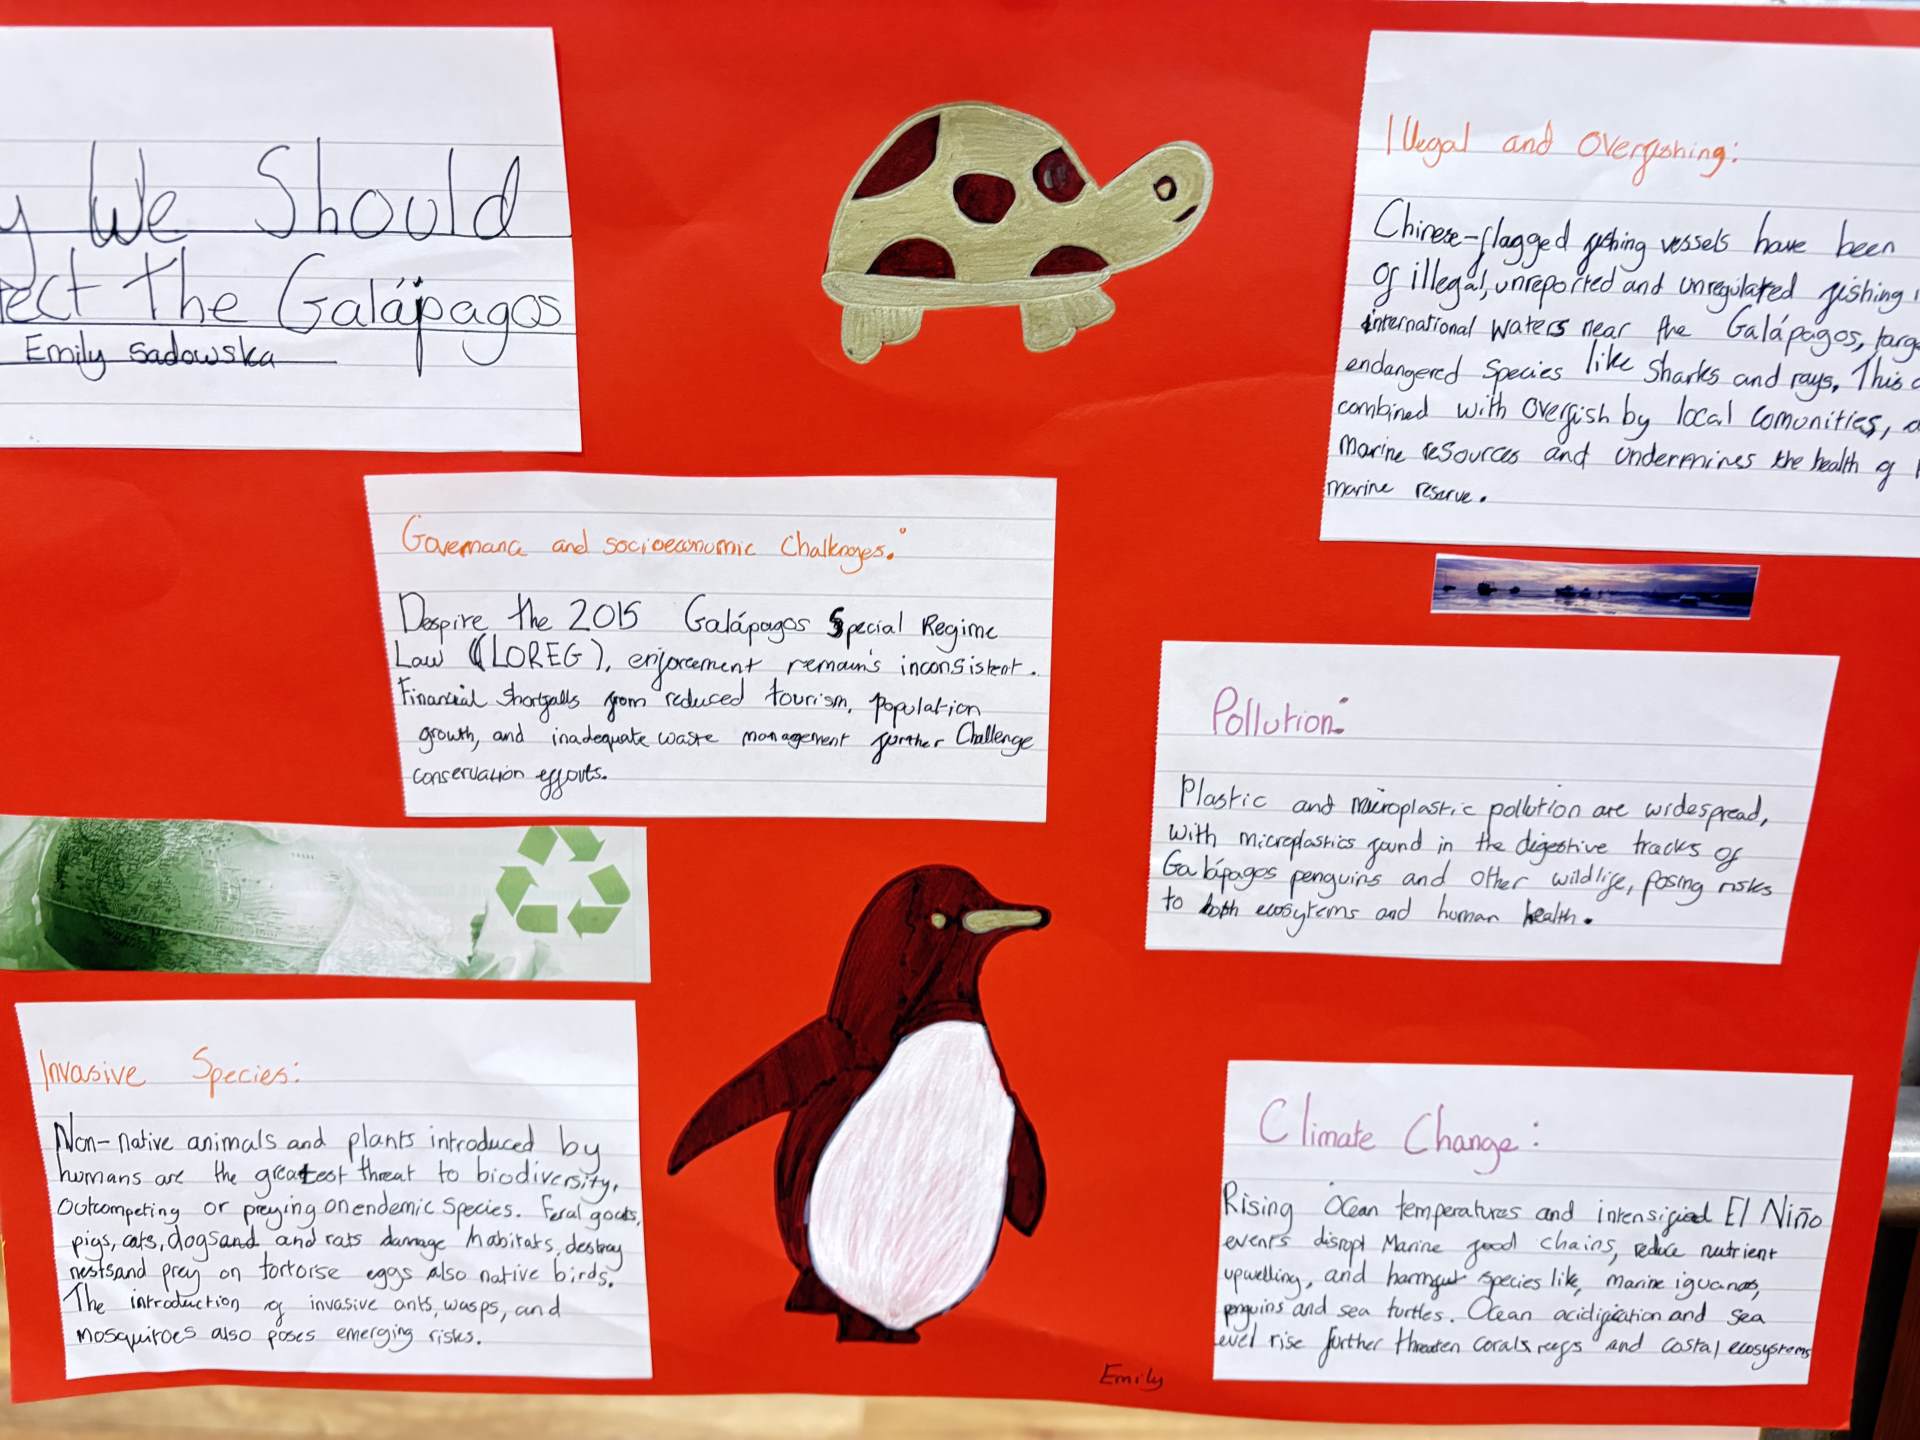 We Should
The Galápagos
Emily Sadowska
Illegal and Overfishing:
Chinese-flagged fishing vessels have been
of illegal, unreported and unregulated fishing
international waters near the Galápagos,
endangered species like sharks and rays. This
combined with overfish by local comunities,
marine resources and undermines the health of
marine reserve.
Governance and socioeconomic Challenges:
Despire the 2015 Galápagos Special Regime
Law (LOREG), enforcement remain's inconsistent.
Financial shortfalls from reduced tourism, population
growth, and inadequate waste management further Challenge
conservation efforts.
Pollution:
Plastic and microplastic pollution are widespread,
with microplastics found in the digestive tracks of
Galápagos penguins and other wildlife, posing risks
to both ecosytems and human health.
Invasive Species:
Non-native animals and plants introduced by
humans are the greatest threat to biodiversity,
outcompeting or preying on endemic species. Feral goats,
pigs, cats, dogsand and rats damage habitats, destroy
nestsand prey on tortoise eggs also native birds.
The introduction of invasive ants, wasps, and
mosquitoes also poses emerging risks.
Climate Change:
Rising Ocean temperatures and intensified El Niño
events disrupt Marine food chains, reduce nutrient
upwelling, and species like, marine iguanas,
penguins and sea turtles. Ocean acidification and sea
level rise further threaten corals reefs and costal ecosystems
Emily